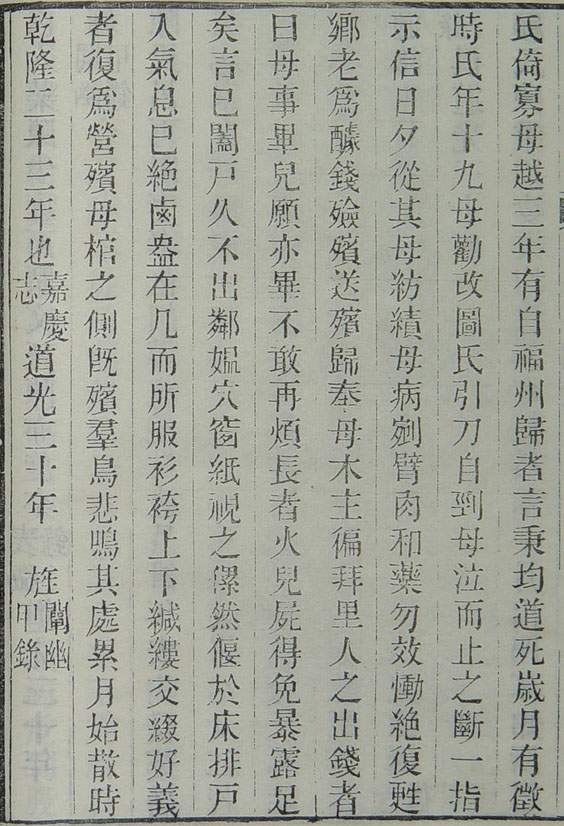 氏倚寡母越三年有自福州歸者言秉均道死歲月有徵
時氏年十九母勸改圖氏引刀自剄母泣而止之斷一指
示信日夕從其母紡績母病剜臂肉和藥勿效慟絕復甦
鄉老爲醵錢殮殯送殯歸奉母木主徧拜里人之出錢者
曰母事畢兒願亦畢不敢再煩長者火兒屍得免暴露足
矣言已闔戶久不出鄰媼穴窗紙視之儽然偃於床排戶
入氣息已絕鹵盎在几而所服衫袴上下緘縷交綴好義
者復爲營殯母棺之側旣殯羣鳥悲鳴其處累月始散時
乾隆二十三年也嘉慶志道光三十年 旌闡幽甲錄